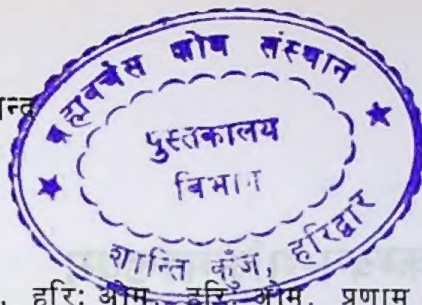 न्द
ब्रह्मवर्चस शोध संस्थान
पुस्तकालय
विभाग
शान्ति कुँज, हरिद्वार
हरि: ओम, हरि: ओम, प्रणाम